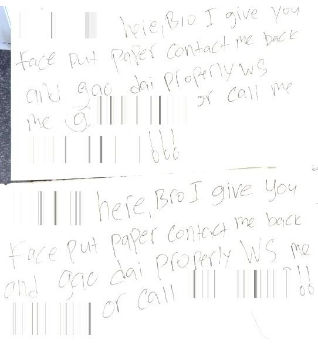 here, Bro I give you
face put paper contact me back
and gao dai properly WS
me @ or call me
!!!
here, Bro I give you
face put paper contact me back
and gao dai properly WS me
or call !!!